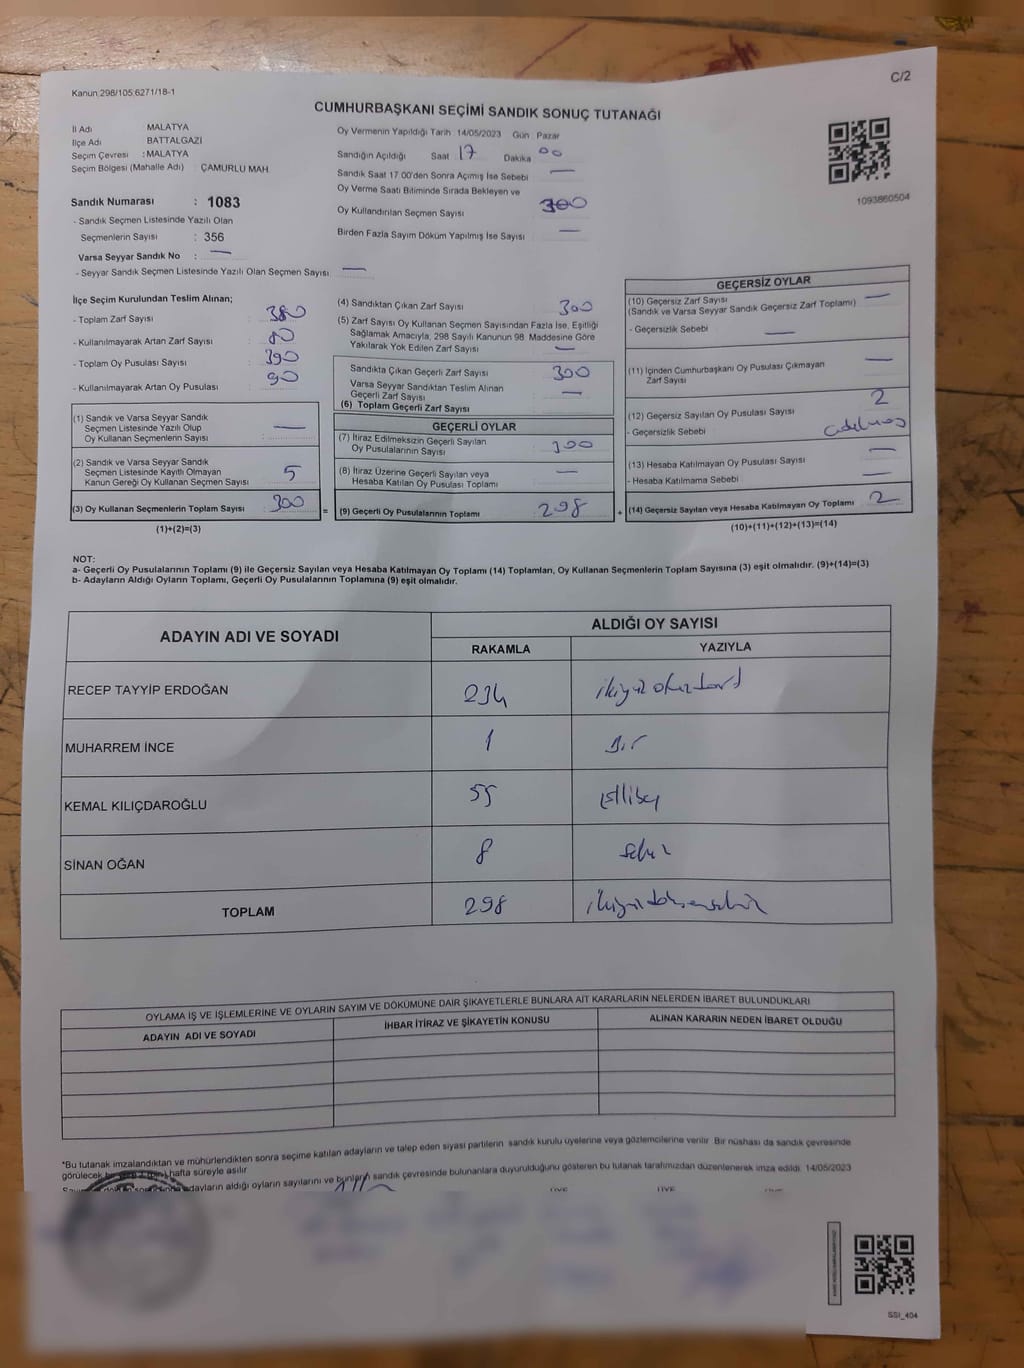 C/2
Kanun 298/105 6271/18-1
CUMHURBAŞKANI SEÇİMİ SANDIK SONUÇ TUTANAĞI
İl Adı MALATYA
İlçe Adı BATTALGAZİ
Seçim Çevresi : MALATYA
Seçim Bölgesi (Mahalle Adı) ÇAMURLU MAH.
Sandık Numarası : 1083
- Sandık Seçmen Listesinde Yazılı Olan
Seçmenlerin Sayısı : 356
Varsa Seyyar Sandık No : —
- Seyyar Sandık Seçmen Listesinde Yazılı Olan Seçmen Sayısı —
Oy Vermenin Yapıldığı Tarih 14/05/2023 Gün Pazar
Sandığın Açıldığı Saat 17 Dakika 00
Sandık Saat 17:00'den Sonra Açımış İse Sebebi —
Oy Verme Saati Bitiminde Sırada Bekleyen ve
Oy Kullandırılan Seçmen Sayısı 300
Birden Fazla Sayım Döküm Yapılmış İse Sayısı —
1093860504
İlçe Seçim Kurulundan Teslim Alınan;
- Toplam Zarf Sayısı : 380
- Kullanılmayarak Artan Zarf Sayısı : 80
- Toplam Oy Pusulası Sayısı : 390
- Kullanılmayarak Artan Oy Pusulası : 90
(1) Sandık ve Varsa Seyyar Sandık
Seçmen Listesinde Yazılı Olup
Oy Kullanan Seçmenlerin Sayısı : —
(2) Sandık ve Varsa Seyyar Sandık
Seçmen Listesinde Kayıtlı Olmayan
Kanun Gereği Oy Kullanan Seçmen Sayısı 5
(3) Oy Kullanan Seçmenlerin Toplam Sayısı 300 =
(1)+(2)=(3)
(4) Sandıktan Çıkan Zarf Sayısı 300
(5) Zarf Sayısı Oy Kullanan Seçmen Sayısından Fazla İse, Eşitliği
Sağlamak Amacıyla, 298 Sayılı Kanunun 98. Maddesine Göre
Yakılarak Yok Edilen Zarf Sayısı —
Sandıkta Çıkan Geçerli Zarf Sayısı 300
Varsa Seyyar Sandıktan Teslim Alınan
Geçerli Zarf Sayısı —
(6) Toplam Geçerli Zarf Sayısı
GEÇERLİ OYLAR
(7) İtiraz Edilmeksizin Geçerli Sayılan
Oy Pusulalarının Sayısı 300
(8) İtiraz Üzerine Geçerli Sayılan veya
Hesaba Katılan Oy Pusulası Toplamı —
(9) Geçerli Oy Pusulalarının Toplamı 298 +
GEÇERSİZ OYLAR
(10) Geçersiz Zarf Sayısı —
(Sandık ve Varsa Seyyar Sandık Geçersiz Zarf Toplamı)
- Geçersizlik Sebebi —
(11) İçinden Cumhurbaşkanı Oy Pusulası Çıkmayan
Zarf Sayısı —
(12) Geçersiz Sayılan Oy Pusulası Sayısı 2
- Geçersizlik Sebebi
(13) Hesaba Katılmayan Oy Pusulası Sayısı —
- Hesaba Katılmama Sebebi —
(14) Geçersiz Sayılan veya Hesaba Katılmayan Oy Toplamı 2
(10)+(11)+(12)+(13)=(14)
NOT:
a- Geçerli Oy Pusulalarının Toplamı (9) ile Geçersiz Sayılan veya Hesaba Katılmayan Oy Toplamı (14) Toplamları, Oy Kullanan Seçmenlerin Toplam Sayısına (3) eşit olmalıdır. (9)+(14)=(3)
b- Adayların Aldığı Oyların Toplamı, Geçerli Oy Pusulalarının Toplamına (9) eşit olmalıdır.
ADAYIN ADI VE SOYADI ALDIĞI OY SAYISI
RAKAMLA YAZIYLA
RECEP TAYYİP ERDOĞAN 234 ikiyüz otuzdört
MUHARREM İNCE 1 Bir
KEMAL KILIÇDAROĞLU 55 Ellibeş
SİNAN OĞAN 8 sekiz
TOPLAM 298 ikiyüzdoksansekiz
OYLAMA İŞ VE İŞLEMLERİNE VE OYLARIN SAYIM VE DÖKÜMÜNE DAİR ŞİKAYETLERLE BUNLARA AİT KARARLARIN NELERDEN İBARET BULUNDUKLARI
ADAYIN ADI VE SOYADI İHBAR İTİRAZ VE ŞİKAYETİN KONUSU ALINAN KARARIN NEDEN İBARET OLDUĞU
*Bu tutanak imzalandıktan ve mühürlendikten sonra seçime katılan adayların ve talep eden siyasi partilerin sandık kurulu üyelerine veya gözlemcilerine verilir. Bir nüshası da sandık çevresinde
görülecek hafta süreyle asılır.
adayların aldığı oyların sayılarını ve bunların sandık çevresinde bulunanlara duyurulduğunu gösteren bu tutanak tarafımızdan düzenlenerek imza edildi. 14/05/2023
ÜYE ÜYE
SSİ_404